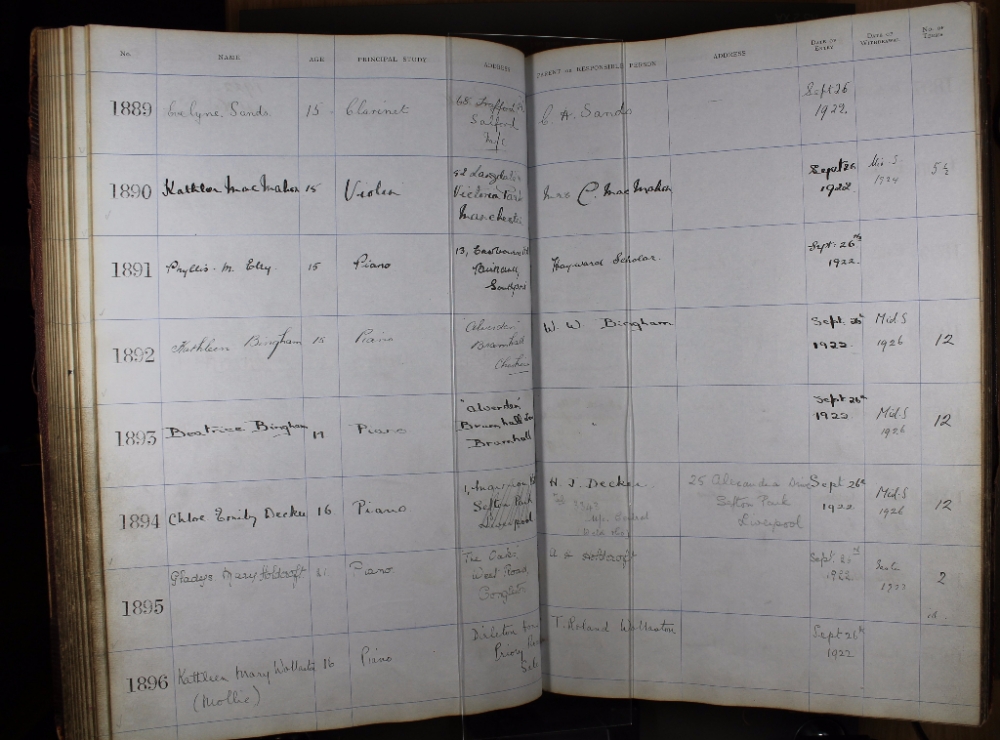 No. NAME AGE PRINCIPAL STUDY ADDRESS PARENT OR RESPONSIBLE PERSON ADDRESS DATE OF ENTRY DATE OF WITHDRAWAL No. OF TERMS
1889 Evelyne Sands 15 Clarinet 68. Salford M/c C. A. Sands Sept 26 1922.
1890 Kathleen MacMahon 15 Violin Victoria Park Manchester Mrs C. MacMahon Sept 26 1922 Mid S 1924 5½
1891 Phyllis. M. Elry. 15 Piano 13, Hayward Scholar. Sept. 26th 1922.
1892 Kathleen Bingham 15 Piano "Alverden" Bramhall Cheshire W. W. Bingham Sept. 26th 1922. Mid S 1926 12
1893 Beatrice Bingham 17 Piano "Alverden" Bramhall Ln Bramhall Sept 26th 1922 Mid. S 1926 12
1894 Chloe Emily Decker 16 Piano 1, Sefton Park Liverpool H. J. Decker. 25 Alexandra Drive Sefton Park Liverpool Sept 26th 1922 Mid-S 1926 12
1895 Gladys Mary Holdcroft 21 Piano The Oaks, West Road, Congleton Holdcroft Sept. 1922. 1923 2
1896 Kathleen Mary 16 Piano Priory Sale T. Roland Wollaston Sept 26th 1922
(Mollie)